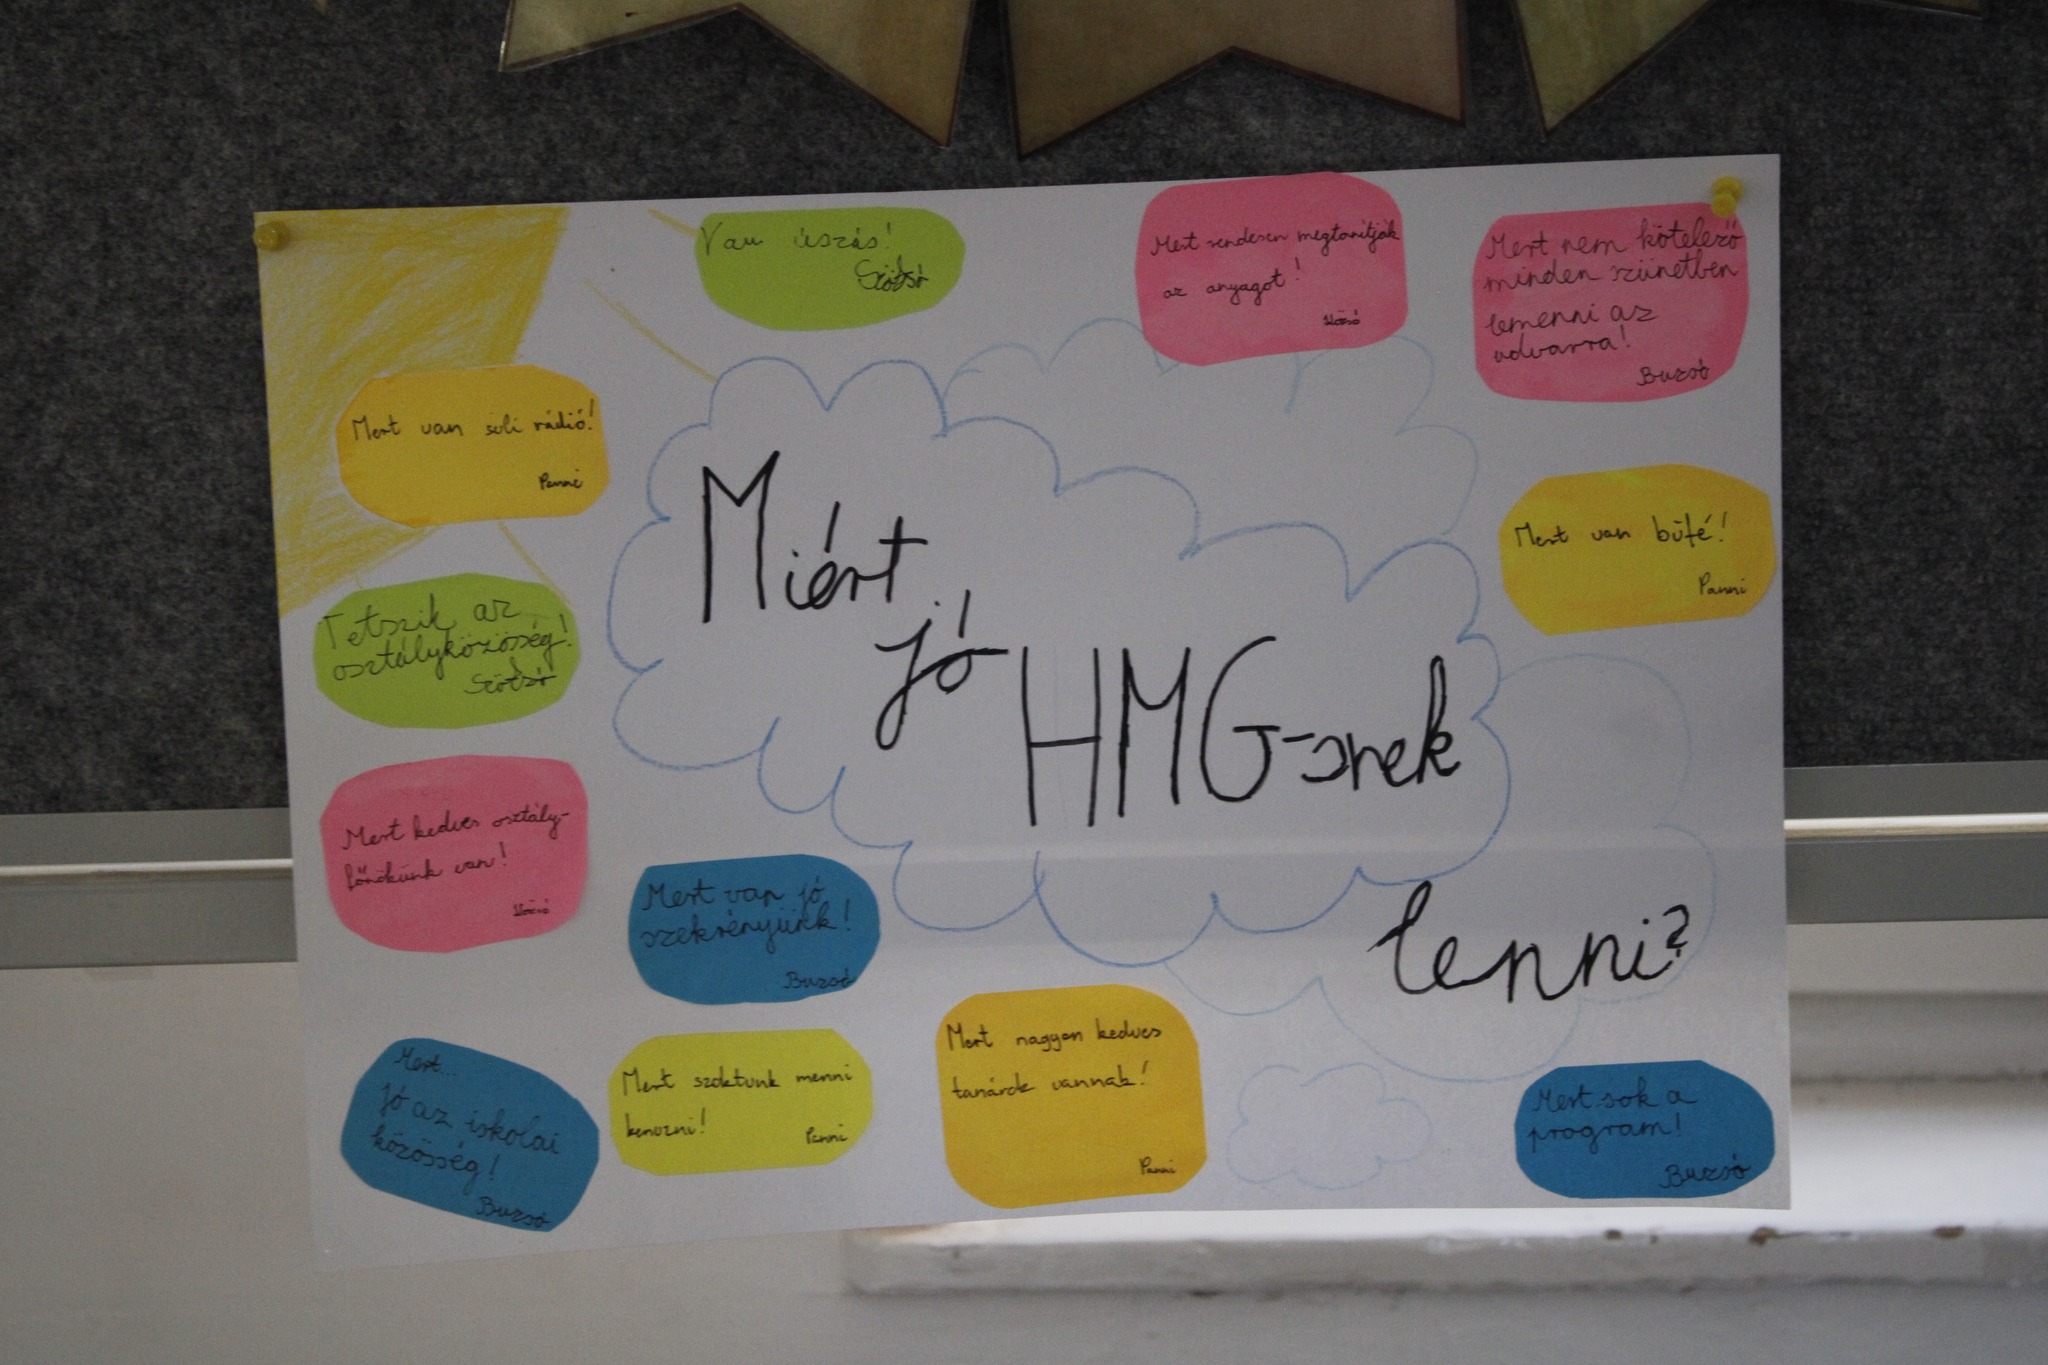 Miért
jó
HMG-snek
lenni?
Van úszás!
Szötsó
Mert rendesen megtanítják
az anyagot!
Mert nem kötelező
minden szünetben
lemenni az
udvarra!
Buzsó
Mert van suli rádió!
Panni
Mert van büfé!
Panni
Tetszik az
osztályközösség!
Szötsó
Mert kedves osztály-
főnökünk van!
Mert van jó
szekrényünk!
Buzsó
Mert...
Jó az iskolai
közösség!
Buzsó
Mert szoktunk menni
kenuzni!
Panni
Mert nagyon kedves
tanárok vannak!
Panni
Mert sok a
program!
Buzsó